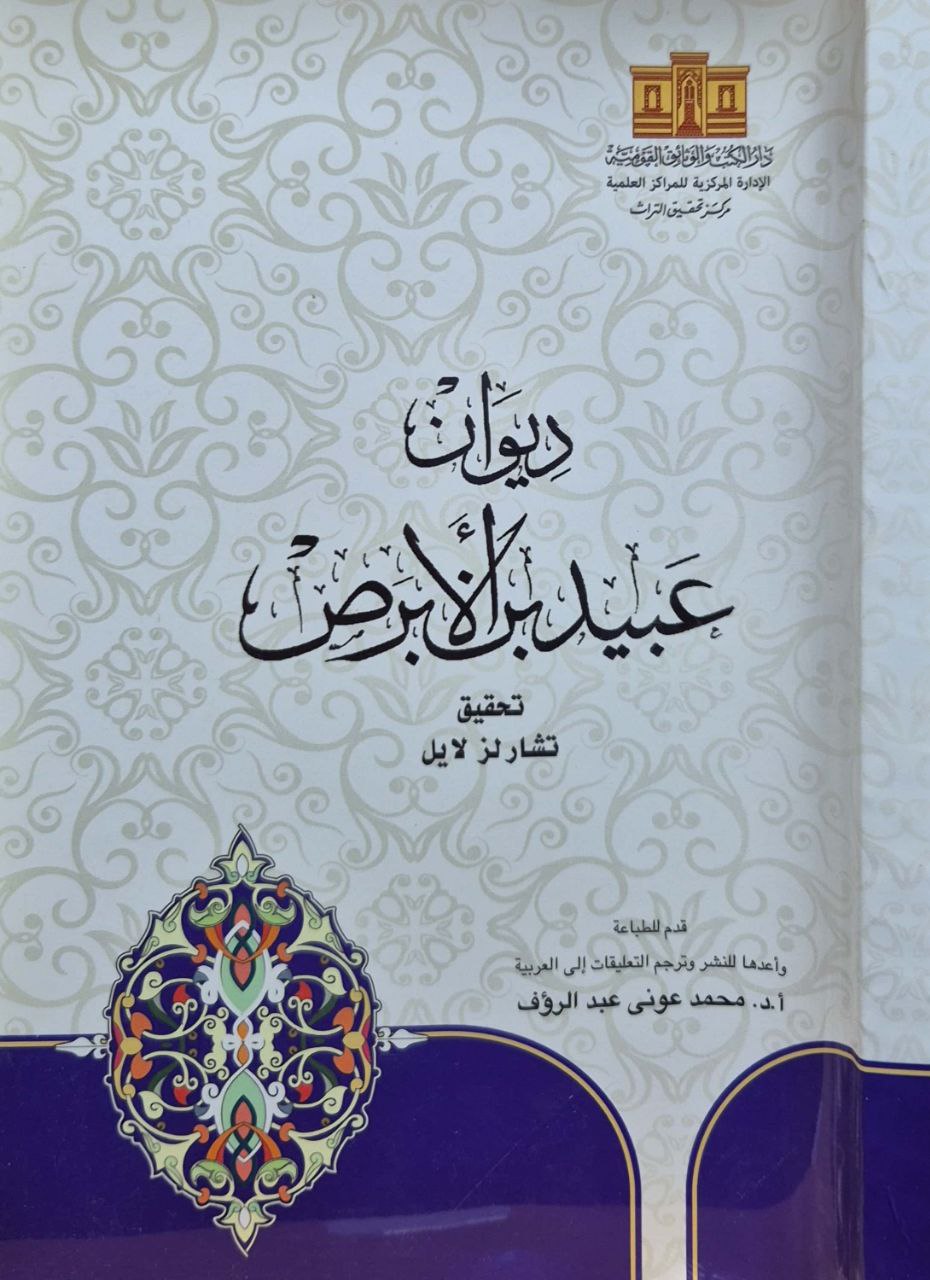 دار الكتب والوثائق القومية
الإدارة المركزية للمراكز العلمية
مركز تحقيق التراث
دِيوَان
عَبيد بن الأَبرَص
تحقيق
تشارلز لايل
قدم للطباعة
وأعدها للنشر وترجم التعليقات إلى العربية
أ.د. محمد عونى عبد الرؤف